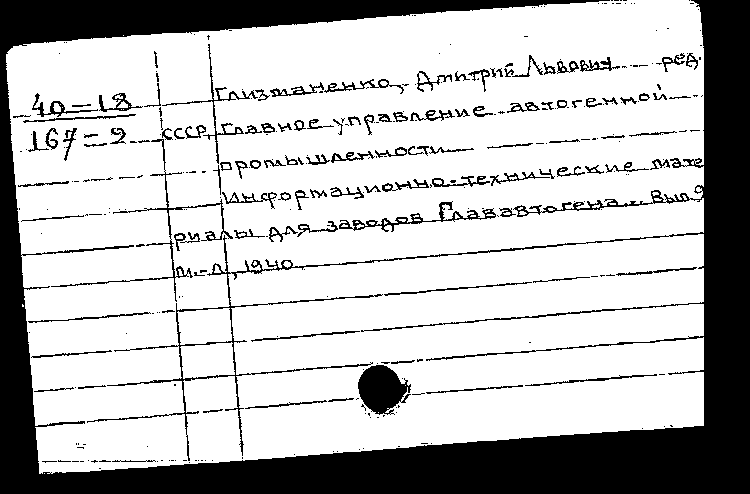 Глизманенко, Дмитрий Львович ред.
40=18
167=9
СССР. Главное управление автогенной
промышленности.
Информационно-технические мате
риалы для заводов Глававтогена.. Вып.9
М.-Л., 1940.